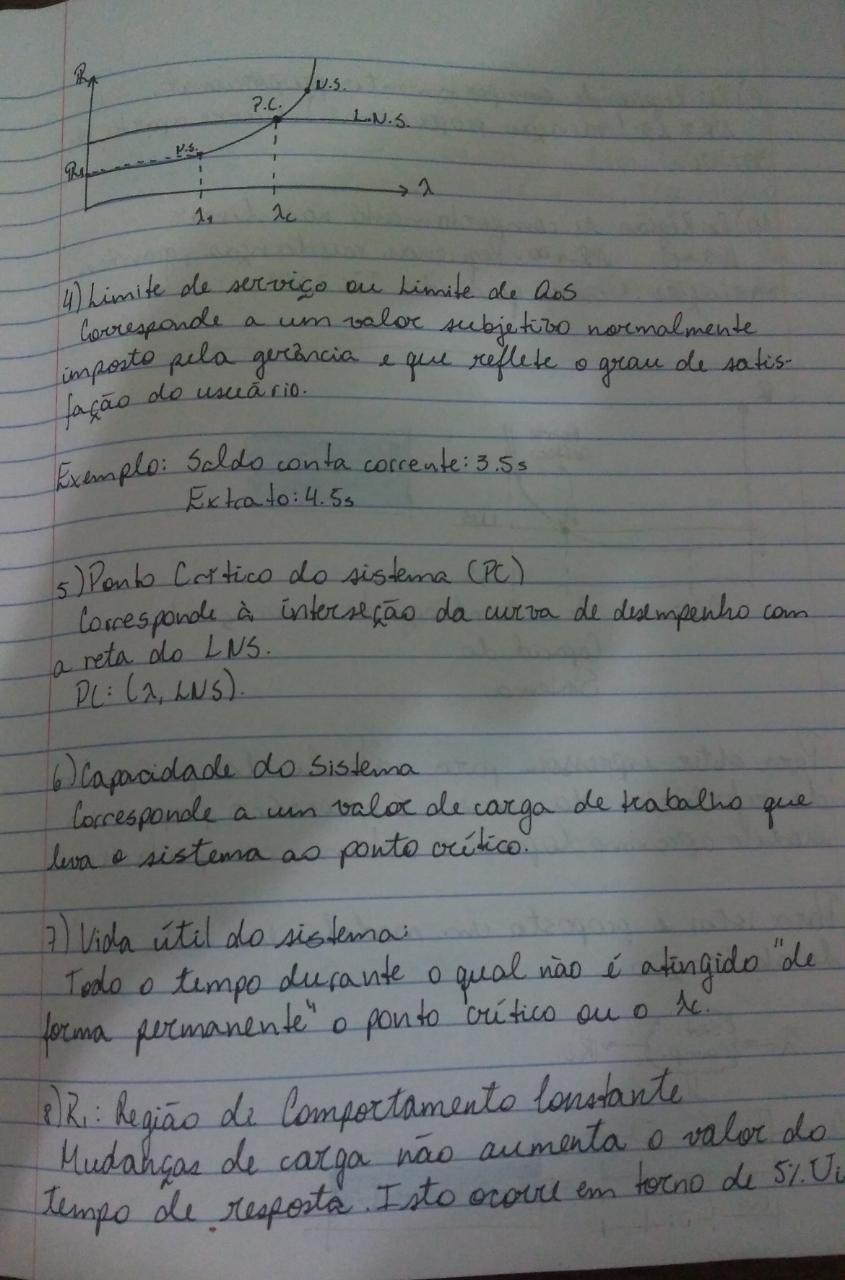 R
N.S.
P.C.
L.N.S.
N.S.
R1
λ
λ1
λc
4) Limite de serviço ou Limite de QoS
Corresponde a um valor subjetivo normalmente
imposto pela gerância e que reflete o grau de satis-
fação do usuário.
Exemplo: Saldo conta corrente: 3.5s
Extrato: 4.5s
5) Ponto Crítico do sistema (PC)
Corresponde à interseção da curva de desempenho com
a reta do LNS.
PC: (λ, LNS).
6) Capacidade do Sistema
Corresponde a um valor de carga de trabalho que
leva o sistema ao ponto crítico.
7) Vida útil do sistema:
Todo o tempo durante o qual não é atingido "de
forma permanente" o ponto crítico ou o λc.
8) R1: Região de Comportamento Constante
Mudanças de carga não aumenta o valor do
tempo de resposta. Isto ocorre em torno de 5% Ui